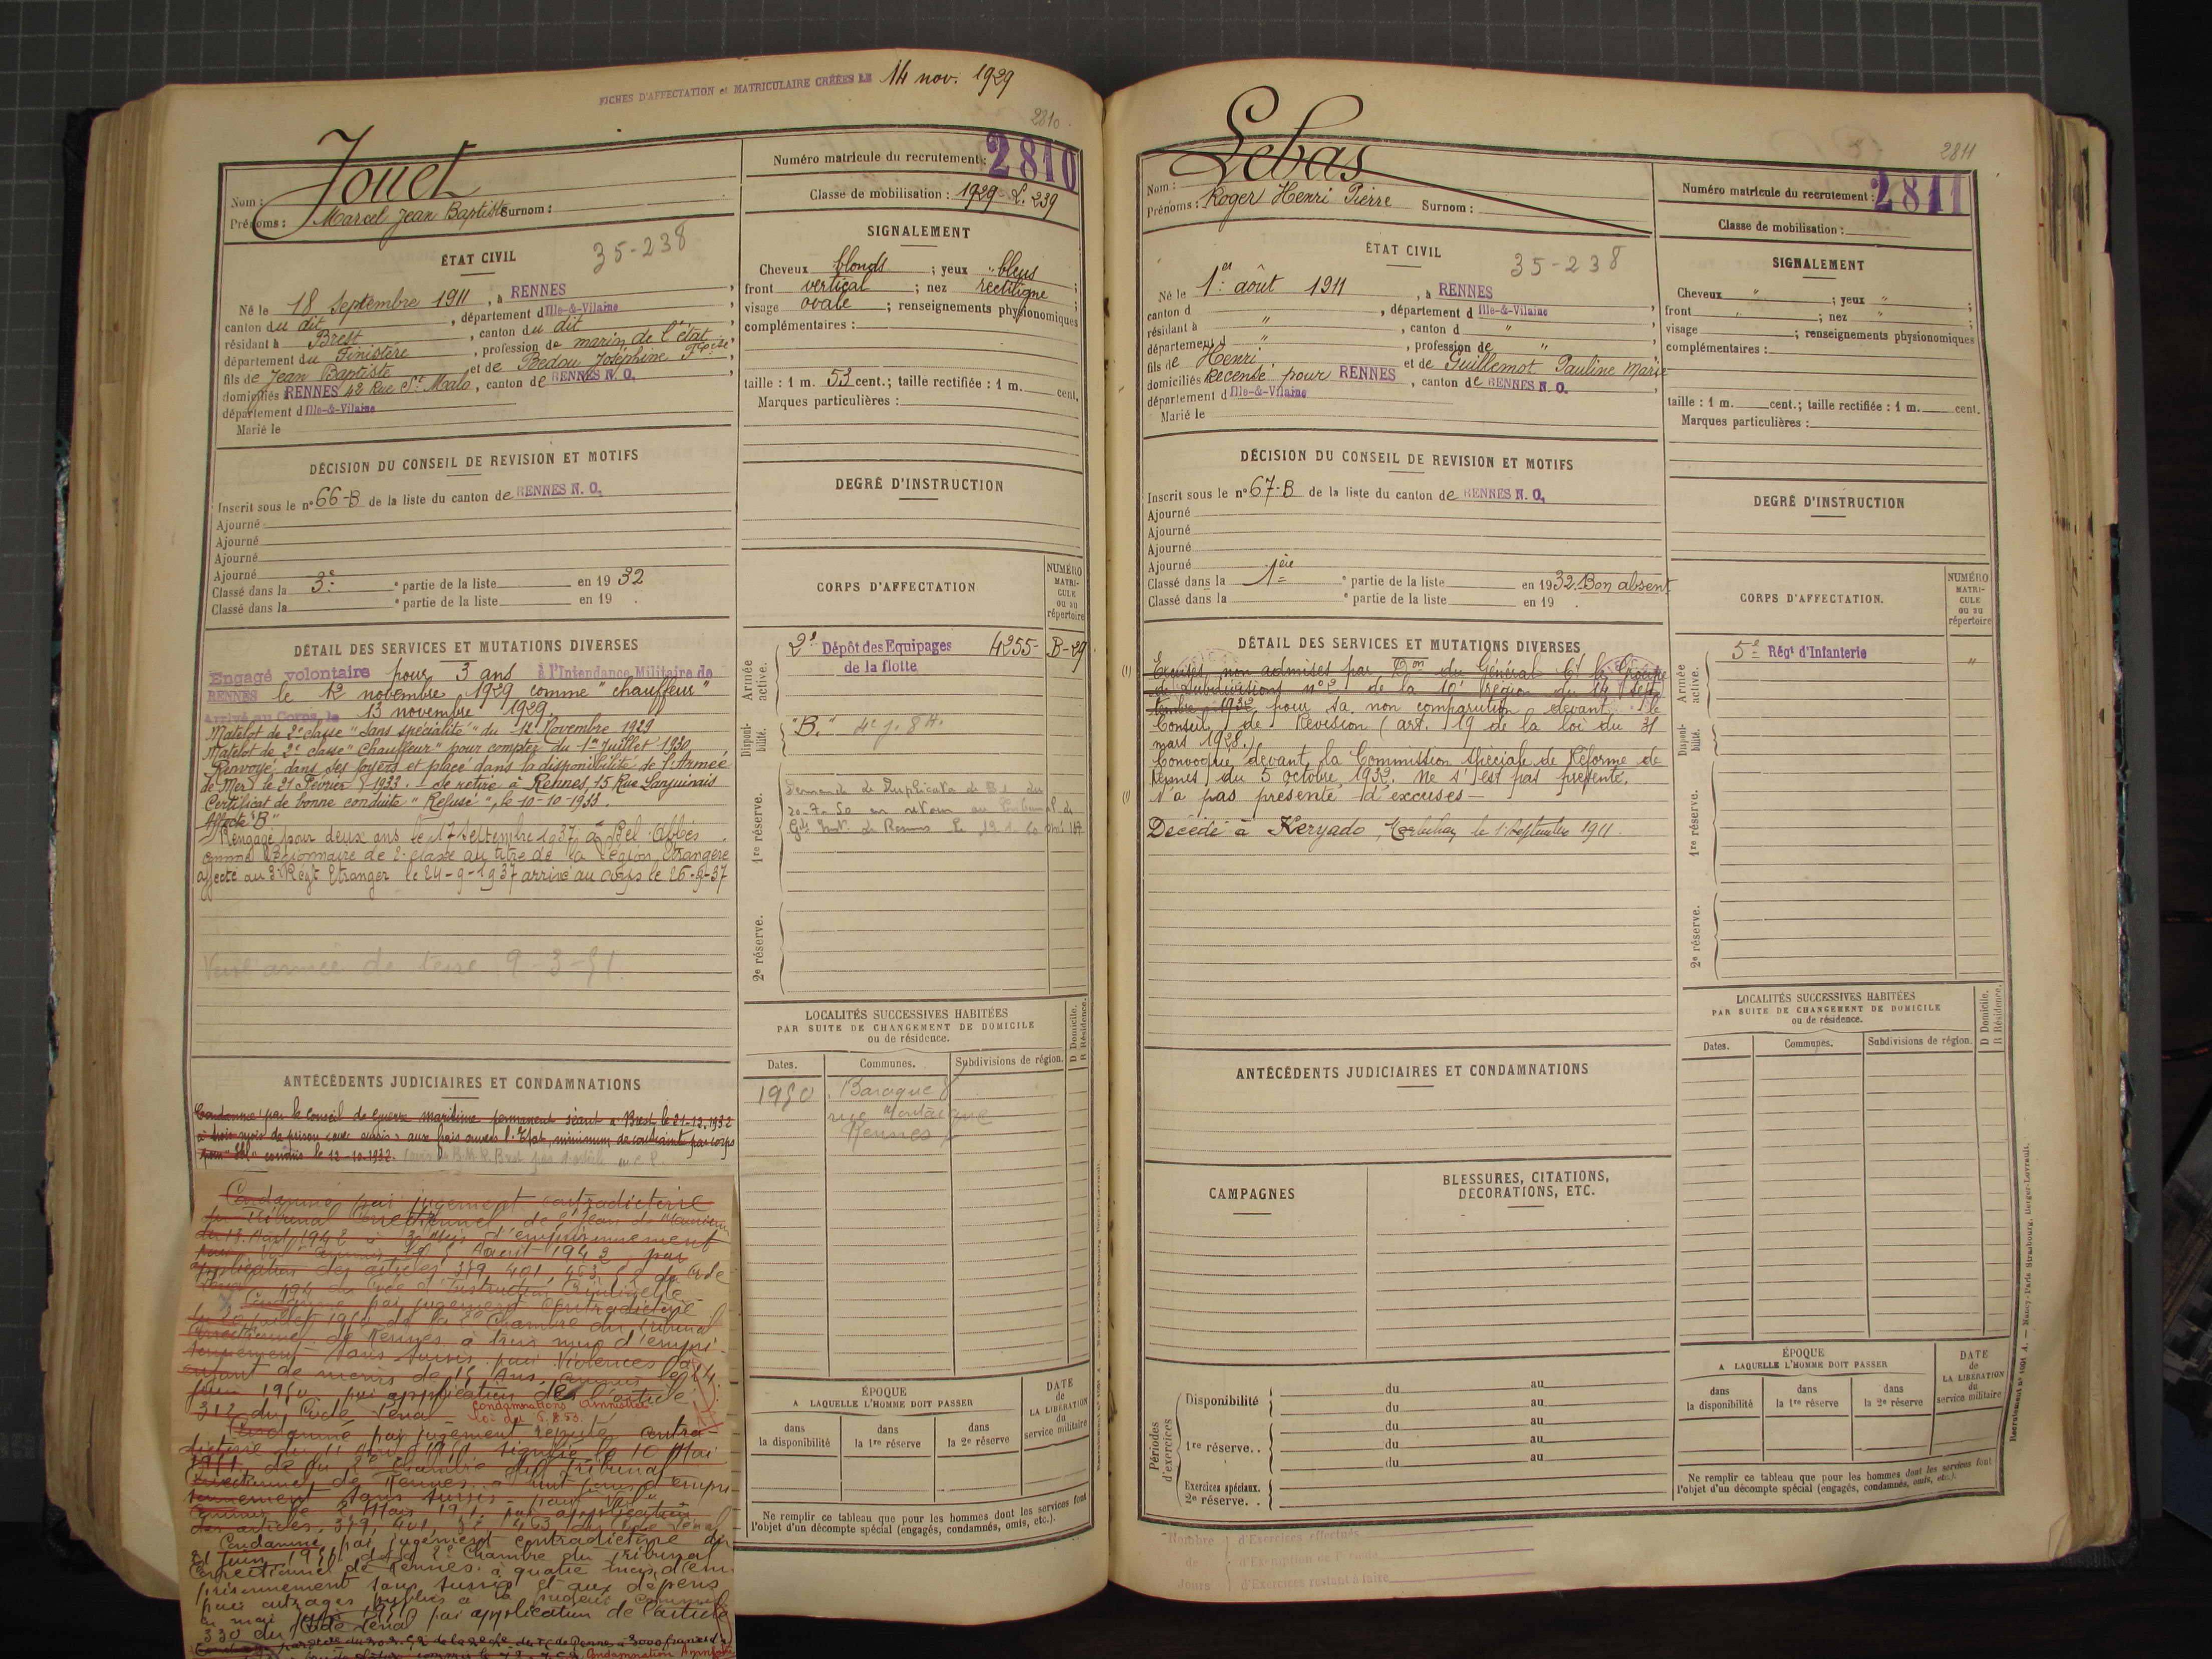 FICHES D'AFFECTATION et MATRICULAIRE CRÉÉES LE 14 nov. 1929
2810
Jouet
Nom :
Prénoms : Marcel Jean Baptiste Surnom :
Numéro matricule du recrutement : 2810
Classe de mobilisation : 1929 - L. 239
ÉTAT CIVIL
35-238
Né le 18 Septembre 1911, à RENNES,
canton du dit, département d Ille-&-Vilaine,
résidant à Brest, canton du dit,
département du Finistère, profession de marin de l'état,
fils de Jean Baptiste et de Bedou Joséphine Fçoise,
domiciliés RENNES 42 Rue St Malo, canton de RENNES N. O.
département d Ille-&-Vilaine
Marié le
SIGNALEMENT
Cheveux blonds ; yeux bleus ;
front vertical ; nez rectiligne ;
visage ovale ; renseignements physionomiques
complémentaires :
taille : 1 m. 53 cent.; taille rectifiée : 1 m. cent.
Marques particulières :
DÉCISION DU CONSEIL DE REVISION ET MOTIFS
Inscrit sous le n° 66-B de la liste du canton de RENNES N. O.
Ajourné
Ajourné
Ajourné
Ajourné
Classé dans la 3e partie de la liste en 19 32
Classé dans la partie de la liste en 19 .
DEGRÉ D'INSTRUCTION
DÉTAIL DES SERVICES ET MUTATIONS DIVERSES
Engagé volontaire pour 3 ans à l'Intendance Militaire de
RENNES le 12 novembre 1929 comme "chauffeur"
Arrivé au Corps le 13 novembre 1929.
Matelot de 2e classe "Sans spécialité" du 12 Novembre 1929
Matelot de 2e classe "Chauffeur" pour compter du 1er Juillet 1930
Renvoyé dans ses foyers et placé dans la disponibilité de l'Armée
de Mer le 21 Février 1933. - Se retire à Rennes, 15 Rue Languinais
Certificat de bonne conduite "Refusé", le 10-10-1933.
Affecté "B"
Rengagé pour deux ans le 17 Septembre 1937 à Bel Abbès
comme Légionnaire de 2e classe au titre de la Légion Etrangère
affecté au 3e Régt Etranger le 24-9-1937 arrivé au corps le 26-9-37
armée de terre 9-3-51.
CORPS D'AFFECTATION
NUMÉRO MATRICULE OU AU répertoire
Armée active.
2e Dépôt des Equipages 4255- B-29
de la flotte
Disponibilité.
"B."
1re réserve.
Demande de Duplicata de
2e réserve.
LOCALITÉS SUCCESSIVES HABITÉES
PAR SUITE DE CHANGEMENT DE DOMICILE
ou de résidence.
D Domicile.
R Résidence.
Dates.
Communes.
Subdivisions de région.
1950 Baraque 8
rue Montaigne
Rennes
ANTÉCÉDENTS JUDICIAIRES ET CONDAMNATIONS
Condamné par le Conseil de guerre maritime permanent séant à Brest le 21-12-1932
à trois mois de prison avec sursis, aux frais envers l'Etat, minimum de contrainte par corps
pour "Vol" commis le 12-10-1932.
Condamné par jugement contradictoire
du Tribunal Correctionnel de St Jean de Maurienne
application des articles 379, 401, 463, 52 du Code
Pénal 194 du Code d'Instruction Criminelle
Condamné par jugement contradictoire
du 20 juillet 1950 de la 2e Chambre du Tribunal
Correctionnel de Rennes à trois mois d'empri-
sonnement sans sursis pour Violences à
enfant de moins de 15 Ans, commis le 14
Juin 1950 par application de l'article
312 du Code Pénal
Condamnations Amnistiées
loi du 6.8.53.
Condamné par jugement réputé contra-
dictoire du 11 avril 1951 signifié le 10 Mai
1951 de la 2e Chambre du Tribunal
Correctionnel de Rennes à huit jours d'empri-
sonnement sans sursis pour "Vol"
commis le 2 Mars 1951 par application
des articles 379, 401, 52 463 du Code Pénal
Condamné par jugement contradictoire du
21 Juin 1951 de la 2e Chambre du Tribunal
Correctionnel de Rennes à quatre mois d'em-
prisonnement sans sursis et aux dépens
pour outrages publics à la pudeur commis
en mai 1951 par application de l'article
330 du Code Pénal
Condamnation Amnistiée
ÉPOQUE
A LAQUELLE L'HOMME DOIT PASSER
DATE de LA LIBÉRATION du service militaire
dans la disponibilité
dans la 1re réserve
dans la 2e réserve
Ne remplir ce tableau que pour les hommes dont les services font
l'objet d'un décompte spécial (engagés, condamnés, omis, etc.).
2811
Lebas
Nom :
Prénoms : Roger Henri Pierre Surnom :
Numéro matricule du recrutement : 2811
Classe de mobilisation :
ÉTAT CIVIL
35-238
Né le 1er août 1911, à RENNES
canton d, département d Ille-&-Vilaine,
résidant à ", canton d ",
département ", profession de ",
fils de Henri et de Guillemot Pauline Marie
domiciliés Recensé pour RENNES, canton de RENNES N. O.
département d Ille-&-Vilaine
Marié le
SIGNALEMENT
Cheveux " ; yeux " ;
front " ; nez " ;
visage ; renseignements physionomiques
complémentaires :
taille : 1 m. cent.; taille rectifiée : 1 m. cent.
Marques particulières :
DÉCISION DU CONSEIL DE REVISION ET MOTIFS
Inscrit sous le n° 67-B de la liste du canton de RENNES N. O.
Ajourné
Ajourné
Ajourné
Ajourné
Classé dans la 1ère partie de la liste en 1932. Bon absent
Classé dans la partie de la liste en 19 .
DEGRÉ D'INSTRUCTION
DÉTAIL DES SERVICES ET MUTATIONS DIVERSES
(1) Excusés non admises par Don du Général Ct le Groupe
de Subdivisions n° 2 de la 10e région du 14 Sept-
tembre 1932, pour sa non comparution devant le
Conseil de Révision (art. 19 de la loi du 31
mars 1928.)
Convoqué devant la Commission Spéciale de Réforme de
Rennes du 5 octobre 1932. Ne s'est pas présenté.
(1) N'a pas présenté d'excuses -
Décédé à Keryado, Morbihan le 1 Septembre 1911.
CORPS D'AFFECTATION.
NUMÉRO MATRICULE OU AU répertoire
Armée active.
5e Régt d'Infanterie "
Disponibilité.
1re réserve.
2e réserve.
LOCALITÉS SUCCESSIVES HABITÉES
PAR SUITE DE CHANGEMENT DE DOMICILE
ou de résidence.
D Domicile.
R Résidence.
Dates.
Communes.
Subdivisions de région.
ANTÉCÉDENTS JUDICIAIRES ET CONDAMNATIONS
CAMPAGNES
BLESSURES, CITATIONS,
DÉCORATIONS, ETC.
Périodes d'exercices
Disponibilité
du au
du au
1re réserve. .
du au
du au
Exercices spéciaux.
2e réserve. .
du au
ÉPOQUE
A LAQUELLE L'HOMME DOIT PASSER
DATE de LA LIBÉRATION du service militaire
dans la disponibilité
dans la 1re réserve
dans la 2e réserve
Ne remplir ce tableau que pour les hommes dont les services font
l'objet d'un décompte spécial (engagés, condamnés, omis, etc.).
Nombre de Jours
d'Exercices effectués
d'Exemption de Période
d'Exercices restant à faire
Recrutement n° 1601 A. — Nancy-Paris Strasbourg, Berger-Levrault.